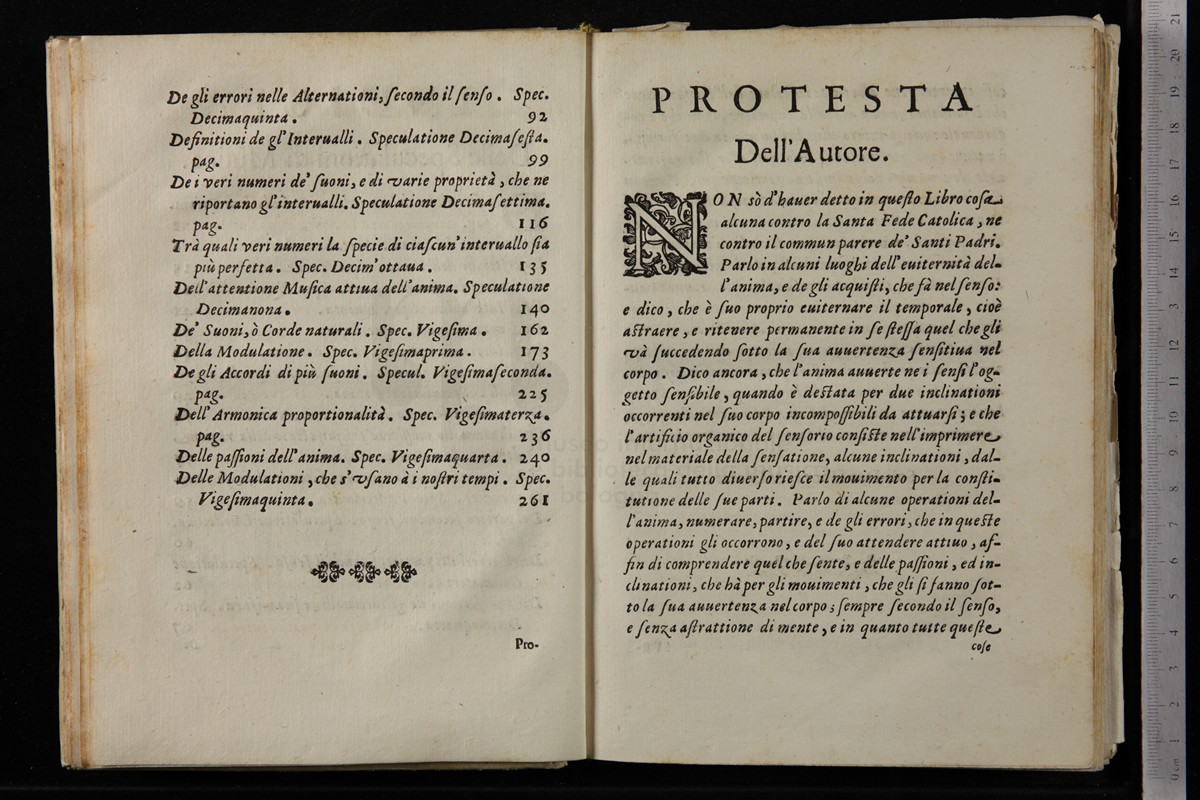 De gli errori nelle Alternationi, ſecondo il ſenſo. Spec.
Decimaquinta. 92
Definitioni de gl'Interualli. Speculatione Decimaſeſta.
pag. 99
De i veri numeri de' ſuoni, e di varie proprietà, che ne
riportano gl'interualli. Speculatione Decimaſettima.
pag. 116
Trà quali veri numeri la ſpecie di ciaſcun' interuallo ſia
più perfetta. Spec. Decim'ottaua. 135
Dell'attentione Muſica attiua dell'anima. Speculatione
Decimanona. 140
De' Suoni, ò Corde naturali. Spec. Vigeſima. 162
Della Modulatione. Spec. Vigeſimaprima. 173
De gli Accordi di più ſuoni. Specul. Vigeſimaſeconda.
pag. 225
Dell'Armonica proportionalità. Spec. Vigeſimaterza.
pag. 236
Delle paſſioni dell'anima. Spec. Vigeſimaquarta. 240
Delle Modulationi, che s'vſano à i noſtri tempi. Spec.
Vigeſimaquinta. 261
Pro-
PROTESTA
Dell'Autore.
NON sò d'hauer detto in queſto Libro coſa
alcuna contro la Santa Fede Catolica, ne
contro il commun parere de' Santi Padri.
Parlo in alcuni luoghi dell'euiternità del-
l'anima, e de gli acquiſti, che fà nel ſenſo:
e dico, che è ſuo proprio euiternare il temporale, cioè
aſtraere, e ritenere permanente in ſe ſteſſa quel che gli
và ſuccedendo ſotto la ſua auuertenza ſenſitiua nel
corpo. Dico ancora, che l'anima auuerte ne i ſenſi l'og-
getto ſenſibile, quando è deſtata per due inclinationi
occorrenti nel ſuo corpo incompoſſibili da attuarſi; e che
l'artificio organico del ſenſorio conſiſte nell'imprimere
nel materiale della ſenſatione, alcune inclinationi, dal-
le quali tutto diuerſo rieſce il mouimento per la conſti-
tutione delle ſue parti. Parlo di alcune operationi del-
l'anima, numerare, partire, e de gli errori, che in queſte
operationi gli occorrono, e del ſuo attendere attiuo, af-
fin di comprendere quel che ſente, e delle paſſioni, ed in-
clinationi, che hà per gli mouimenti, che gli ſi fanno ſot-
to la ſua auuertenza nel corpo; ſempre ſecondo il ſenſo,
e ſenza aſtrattione di mente, e in quanto tutte queſte
coſe